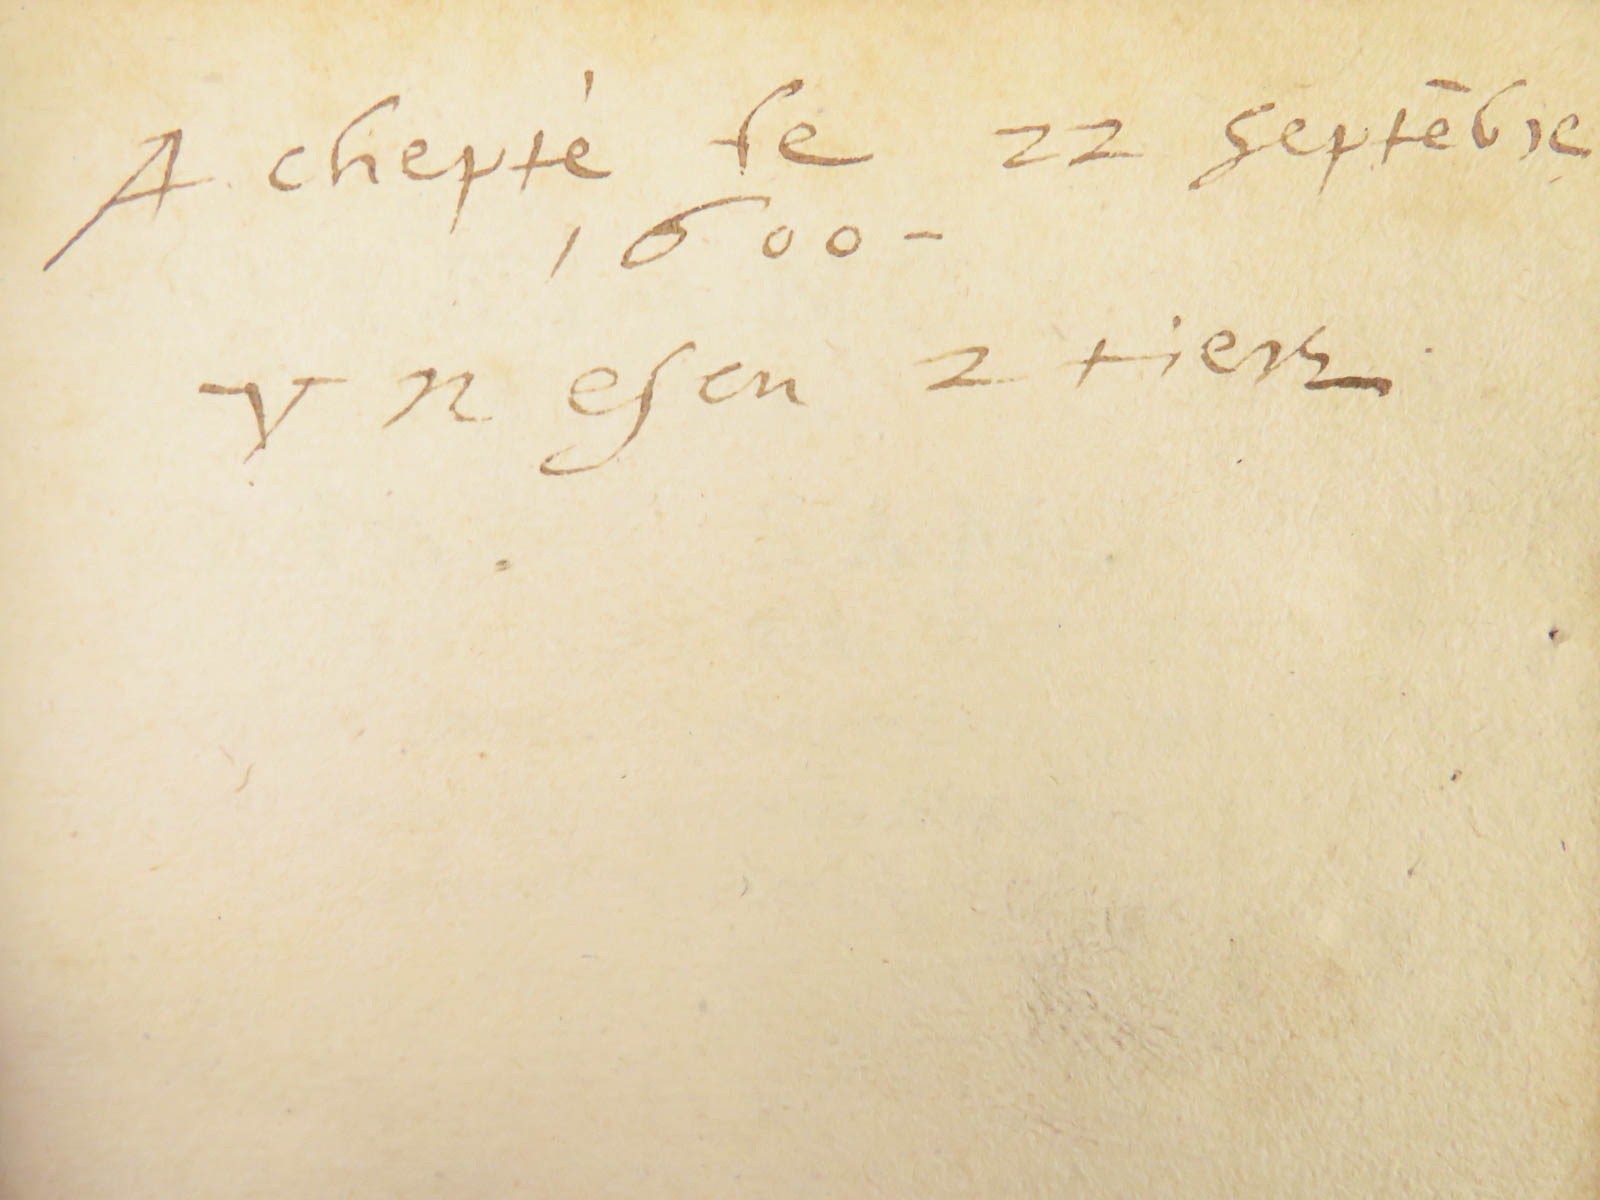 Achepté le 22 septēbre
1600-
Vn escu 2 tiers